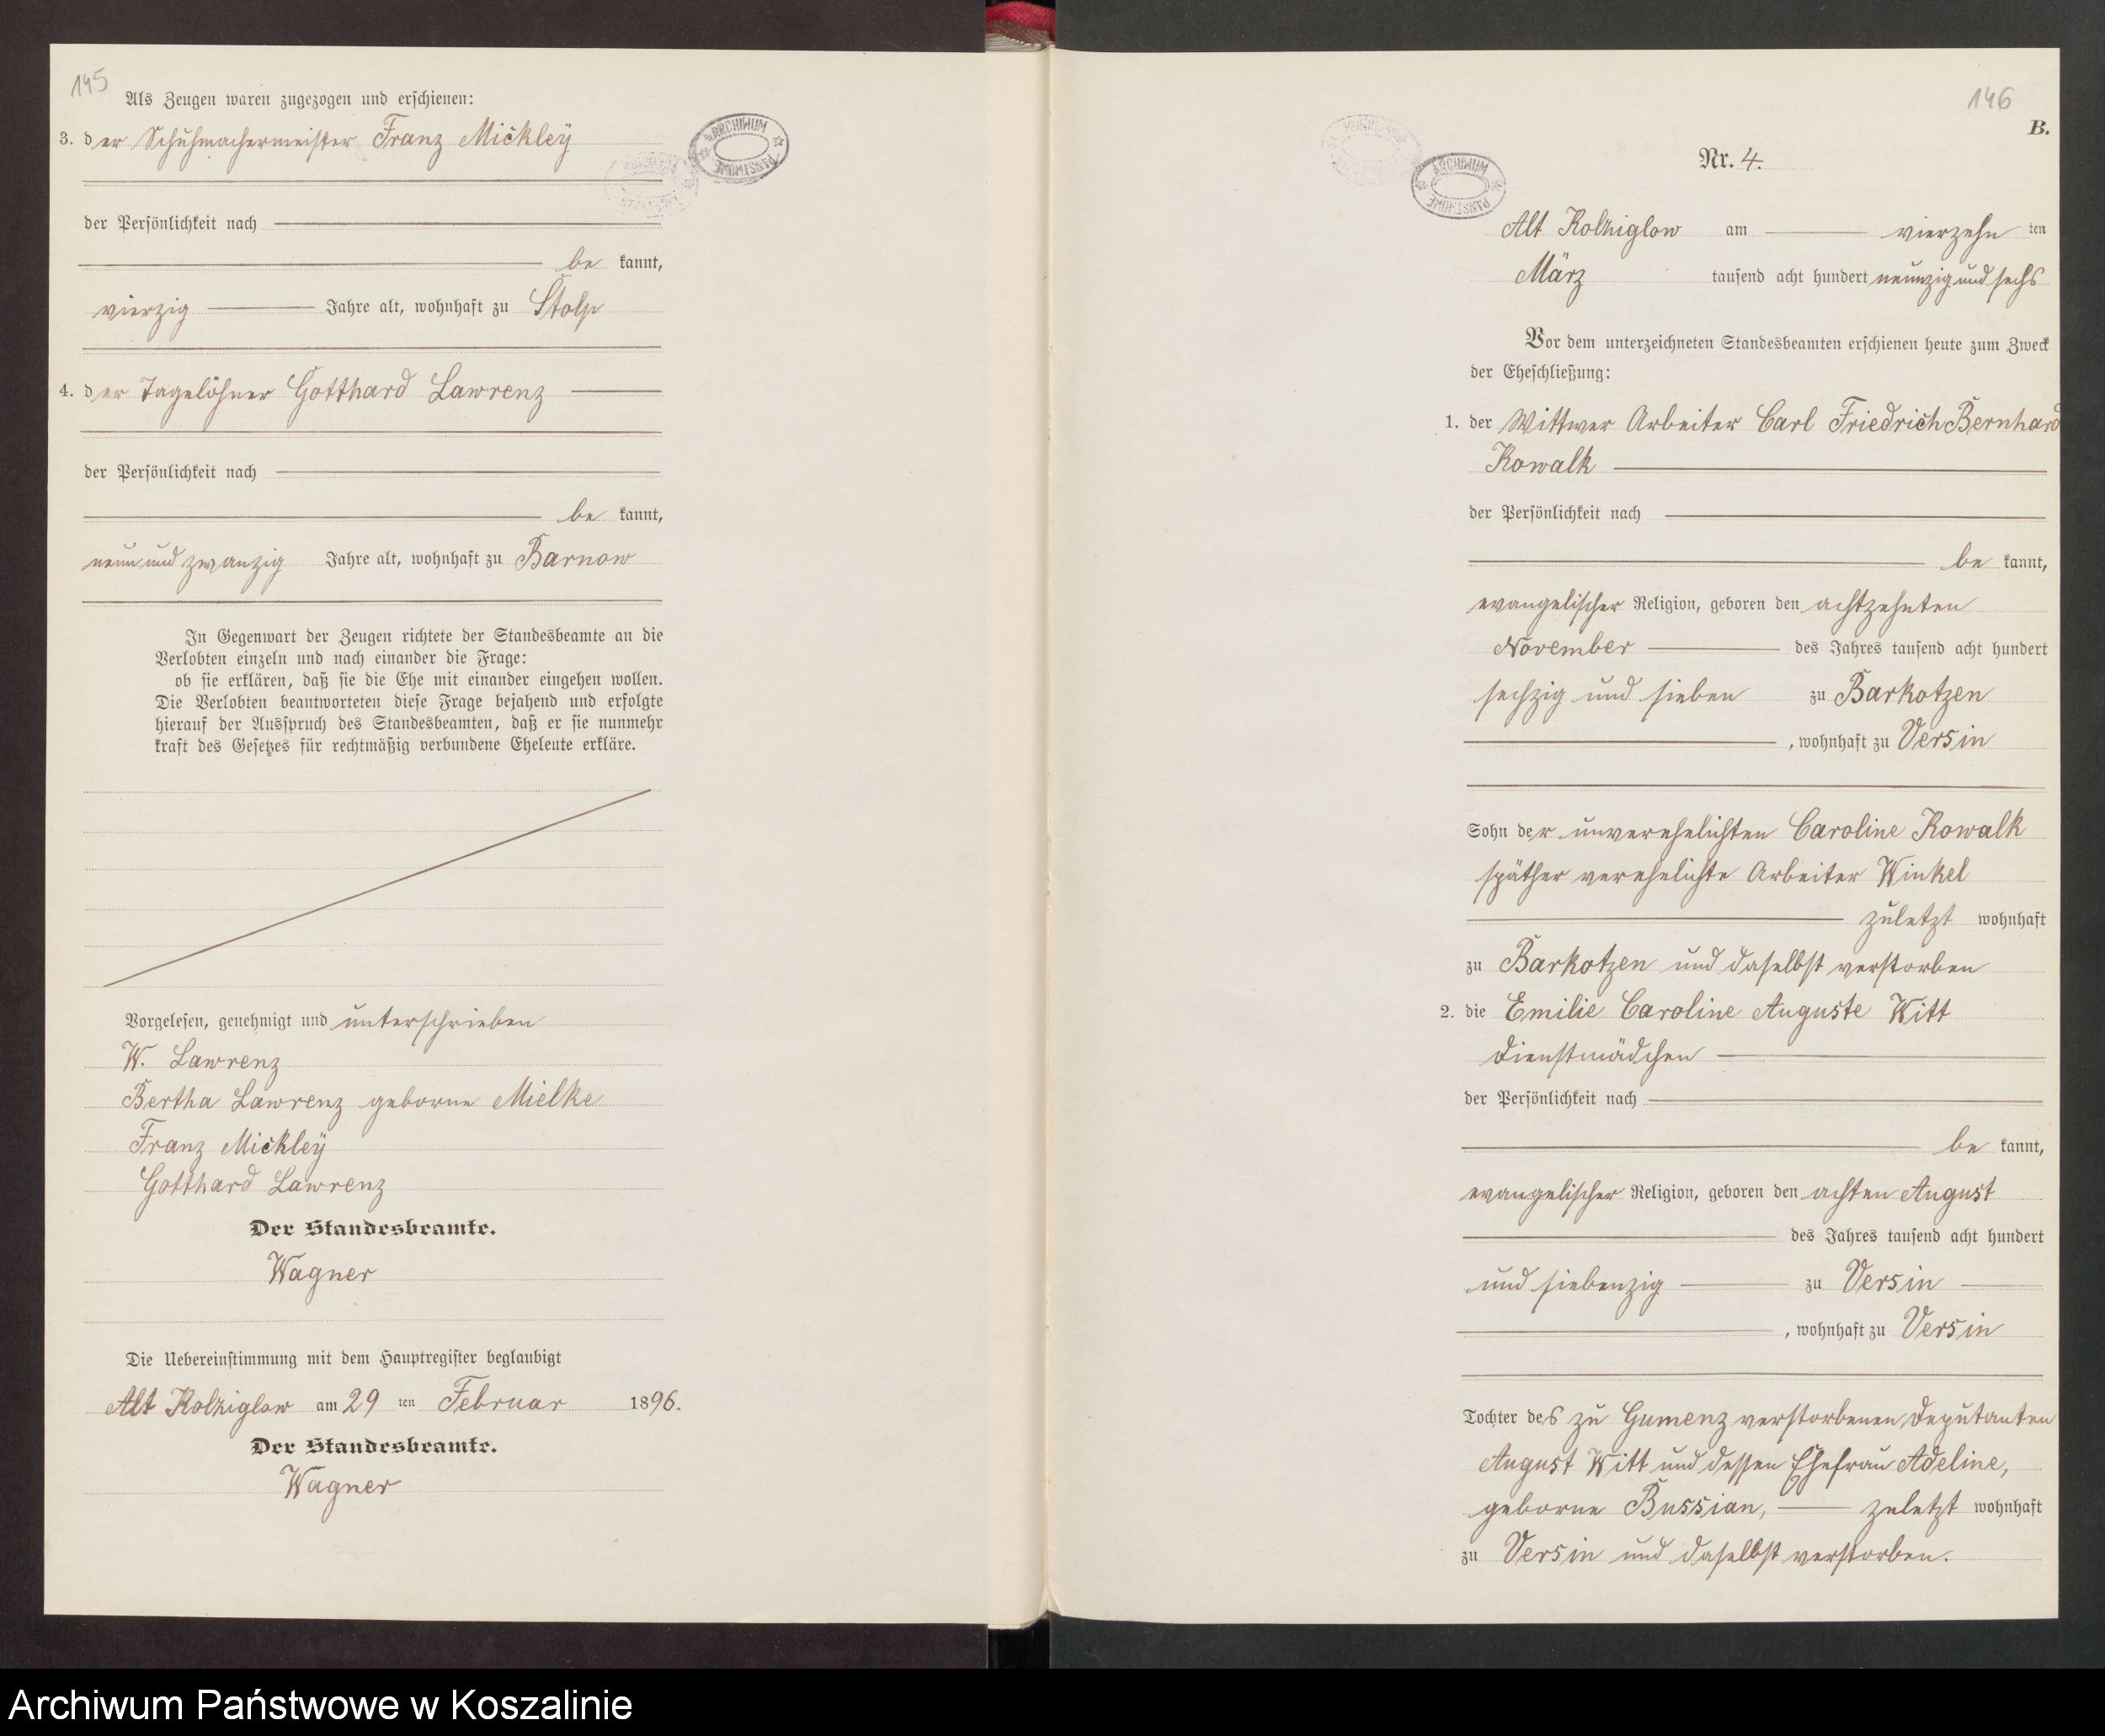 145
Als Zeugen waren zugezogen und erschienen:
3. der Schuhmachermeister Franz Mickleÿ
der Persönlichkeit nach
be kannt,
vierzig Jahre alt, wohnhaft zu Stolp
4. der Tagelöhner Gotthard Lawrenz
der Persönlichkeit nach
be kannt,
neun und zwanzig Jahre alt, wohnhaft zu Barnow
In Gegenwart der Zeugen richtete der Standesbeamte an die
Verlobten einzeln und nach einander die Frage:
ob sie erklären, daß sie die Ehe mit einander eingehen wollen.
Die Verlobten beantworteten diese Frage bejahend und erfolgte
hierauf der Ausspruch des Standesbeamten, daß er sie nunmehr
kraft des Gesetzes für rechtmäßig verbundene Eheleute erkläre.
Vorgelesen, genehmigt und unterschrieben
W. Lawrenz
Bertha Lawrenz geborne Mielke
Franz Mickleÿ
Gotthard Lawrenz
Der Standesbeamte.
Wagner
Die Uebereinstimmung mit dem Hauptregister beglaubigt
Alt Kolziglow am 29 ten Februar 1896.
Der Standesbeamte.
Wagner
ARCHIWUM PAŃSTWOWE
146
B.
Nr. 4.
ARCHIWUM PAŃSTWOWE
Alt Kolziglow am vierzehn ten
März tausend acht hundert neunzig und sechs
Vor dem unterzeichneten Standesbeamten erschienen heute zum Zweck
der Eheschließung:
1. der Wittwer Arbeiter Carl Friedrich Bernhard
Kowalk
der Persönlichkeit nach
be kannt,
evangelischer Religion, geboren den achtzehnten
November des Jahres tausend acht hundert
sechzig und sieben zu Barkotzen
, wohnhaft zu Versin
Sohn der unverehelichten Caroline Kowalk
späther verehelichte Arbeiter Winkel
zuletzt wohnhaft
zu Barkotzen und daselbst verstorben
2. die Emilie Caroline Auguste Witt
Dienstmädchen
der Persönlichkeit nach
be kannt,
evangelischer Religion, geboren den achten August
des Jahres tausend acht hundert
und siebenzig zu Versin
, wohnhaft zu Versin
Tochter des zu Gumenz verstorbenen Deputanten
August Witt und dessen Ehefrau Adeline,
geborne Bussian, zuletzt wohnhaft
zu Versin und daselbst verstorben.
Archiwum Państwowe w Koszalinie